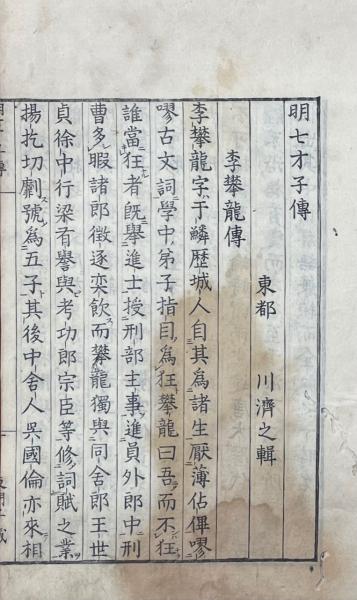 明七才子傳
東都　川濟之輯
李攀龍傳
李攀龍字于鱗歷城人自其為諸生厭薄佔俾嘐
嘐古文詞學中弟子指目為狂攀龍曰吾而不狂
誰當狂者既舉進士授刑部主事進員外郎中刑
曹多暇諸郎徵逐奕飲而攀龍獨與同舍郎王世
貞徐中行梁有譽與考功郎宗臣等修詞賦之業
揚扢切劘號為五子其後中舍人吳國倫亦來相